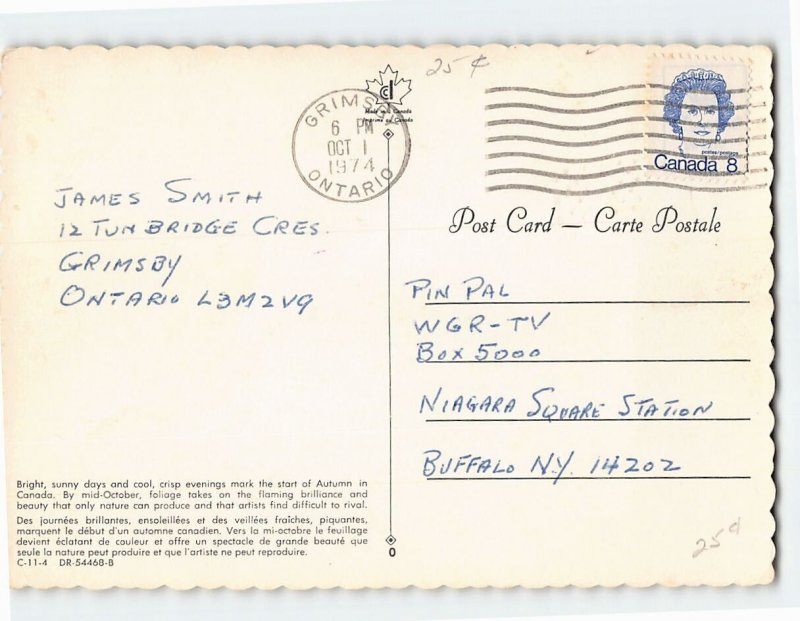 25¢
Made in Canada
Imprimé au Canada
GRIMSBY
6 PM
OCT 1
1974
ONTARIO
postes/postage
Canada 8
JAMES SMITH
12 TUNBRIDGE CRES.
GRIMSBY
ONTARIO L3M2V9
Post Card — Carte Postale
PIN PAL
WGR-TV
BOX 5000
NIAGARA SQUARE STATION
BUFFALO N.Y. 14202
Bright, sunny days and cool, crisp evenings mark the start of Autumn in
Canada. By mid-October, foliage takes on the flaming brilliance and
beauty that only nature can produce and that artists find difficult to rival.
Des journées brillantes, ensoleillées et des veillées fraîches, piquantes,
marquent le début d'un automne canadien. Vers la mi-octobre le feuillage
devient éclatant de couleur et offre un spectacle de grande beauté que
seule la nature peut produire et que l'artiste ne peut reproduire.
C-11-4 DR-54468-B
0
25¢